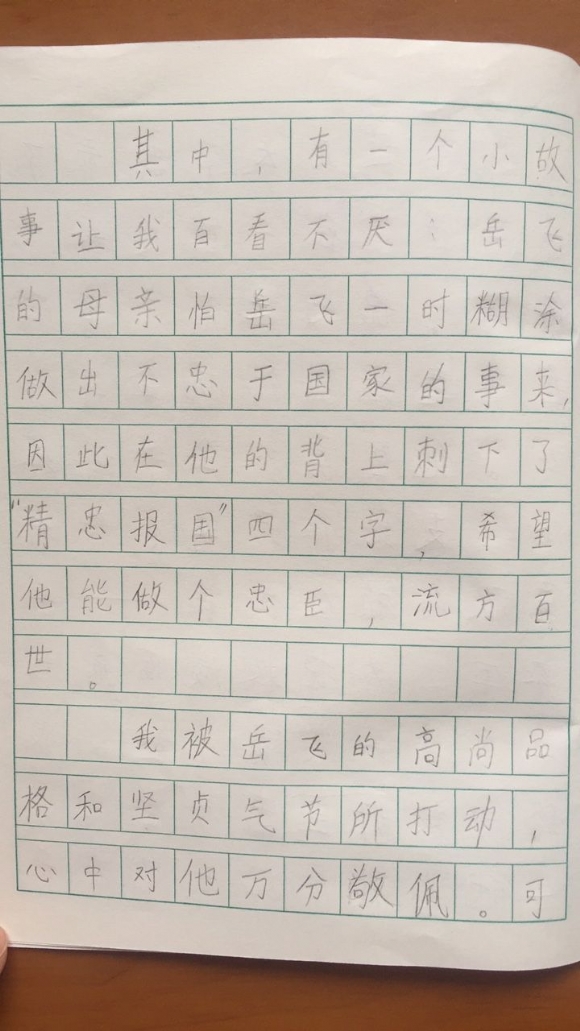 其中，有一个小故
事让我百看不厌：岳飞
的母亲怕岳飞一时糊涂
做出不忠于国家的事来，
因此在他的背上刺下了
“精忠报国”四个字，希望
他能做个忠臣，流方百
世。
我被岳飞的高尚品
格和坚贞气节所打动，
心中对他万分敬佩。可